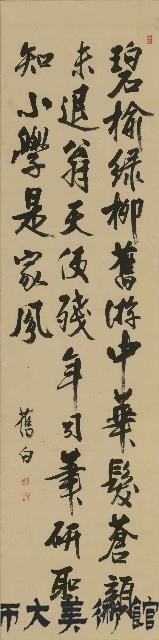 碧榆綠柳舊游中華髮蒼顏
未退翁天使殘年司筆研聊
知小學是家風
舊白
大美術館